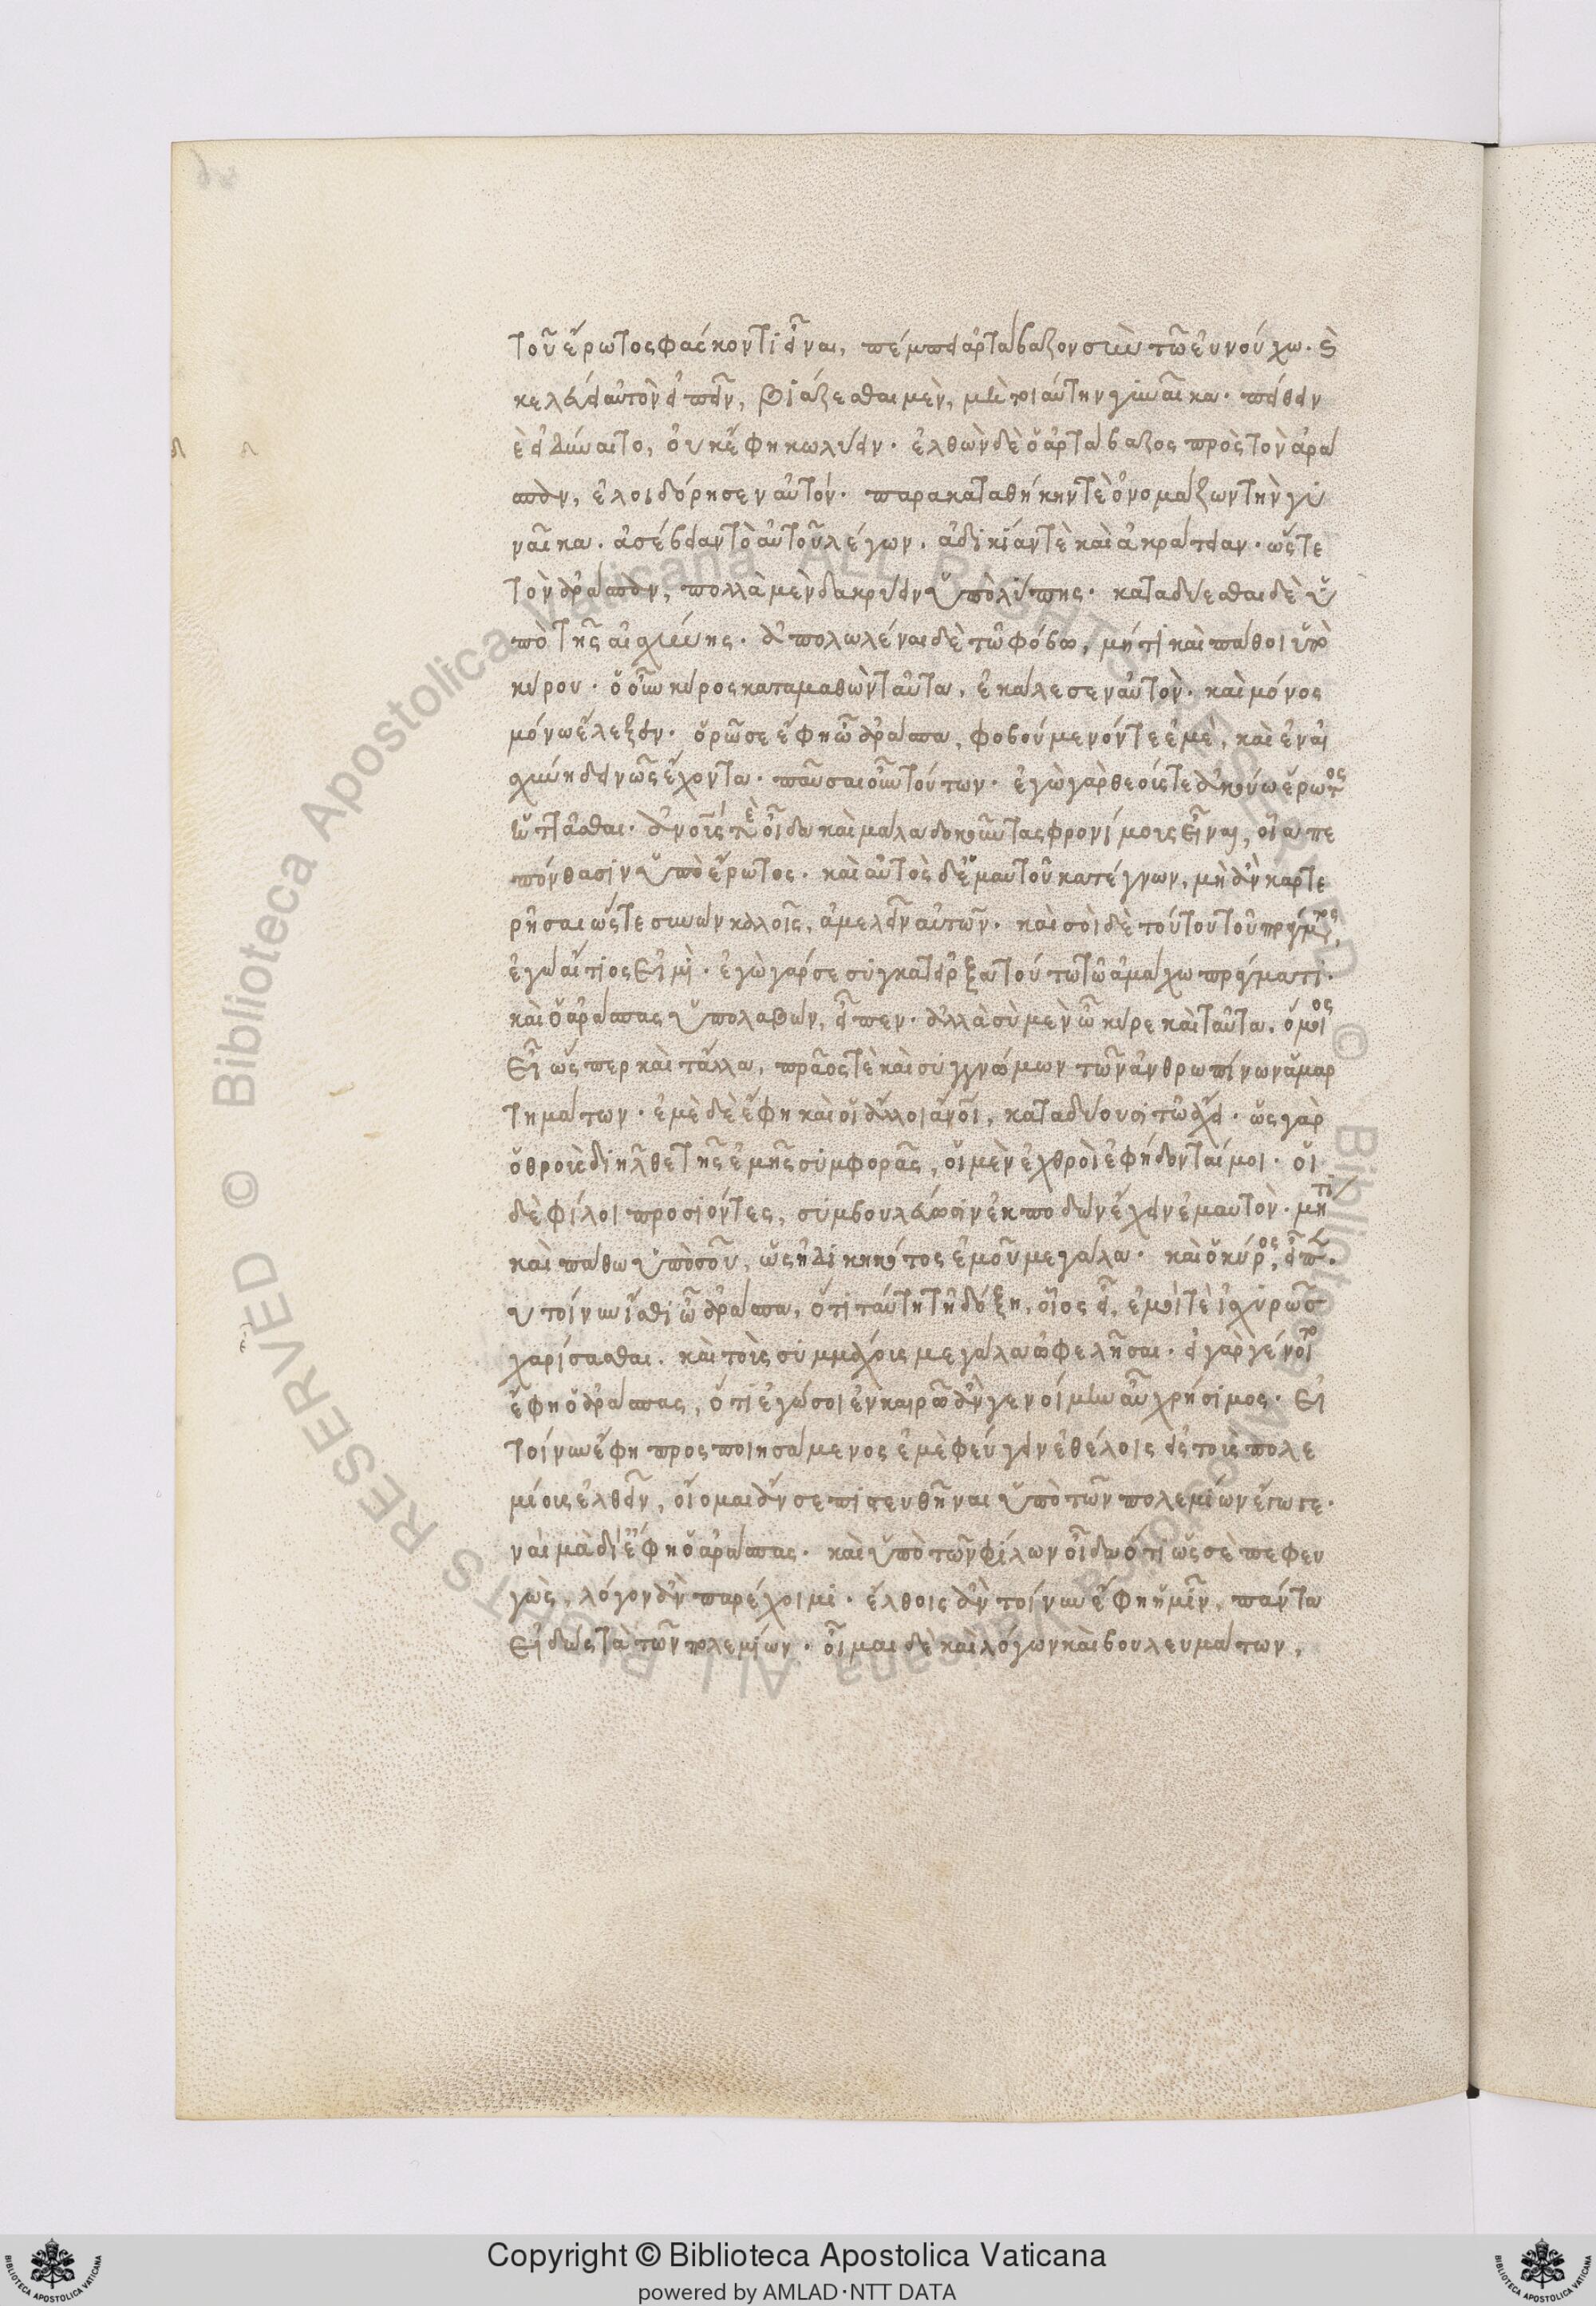 τοῦ ἔρωτος φάσκοντι εἶναι, πέμπει ἀρτάβαζον σὺν τῶ εὐνούχω. καὶ
κελεύει αὐτὸν εἰπεῖν, βιάζεσθαι μὲν, μὴ τοιαύτην γυναῖκα. πείθειν
δὲ εἰ δύναιτο, οὐκ ἔφη κωλύειν. ἐλθὼν δὲ ὁ ἀρτάβαζος πρὸς τὸν ἀρά
σπην, ἐλοιδόρησεν αὐτόν. παρακαταθήκην τὲ ὀνομάζων τὴν γυ
ναῖκα. ἀσέβειάν τὸ αὐτοῦ λέγων. ἀδικίαν τὲ καὶ ἀκράτειαν. ὥστε
τὸν ἀράσπην, πολλὰ μὲν δακρύειν ὑπὸ λύπης. καταδύεσθαι δὲ ὑ
πὸ τῆς αἰσχύνης. ἀπολωλέναι δὲ τῶ φόβω, μή τι καὶ πάθοι ὑπὸ
κύρου. ὁ οὖν κύρος καταμαθὼν ταῦτα, ἐκάλεσεν αὐτὸν. καὶ μόνος
μόνω ἔλεξεν. ὁρῶ σε ἔφη ὦ ἀράσπα, φοβούμενόν τε ἐμέ, καὶ ἐν αἰ
σχύνη δεινῶς ἔχοντα. παῦσαι οὖν τούτων. ἐγὼ γὰρ θεούς τε ἀκούω ἔρωτος
ἡττᾶσθαι. ἀνους τὲ οἶδα καὶ μάλα δοκοῦντας φρονίμους εἶναι, οἷα πε
πόνθασιν ὑπὸ ἔρωτος. καὶ αὐτὸς δ' ἐμαυτοῦ κατέγνων, μὴ ἂν καρτε
ρῆσαι ὥστε συνὼν καλοῖς, ἀμελεῖν αὐτῶν. καὶ σοὶ δὲ τούτου τοῦ πράγματος,
ἐγὼ αἴτιος εἰμὶ. ἐγὼ γάρ σε συγκατεῖρξα τούτω τῶ ἀμάχω πράγματι.
καὶ ὁ ἀράσπας ὑπολαβὼν, εἶπεν. ἀλλὰ σὺ μὲν ὦ κύρε καὶ ταῦτα, ὅμοιος
εἶ ὥσπερ καὶ τἄλλα, πρᾶος τὲ καὶ συγγνώμων τῶν ἀνθρωπίνων ἁμαρ
τημάτων. ἐμὲ δὲ ἔφη καὶ οἱ ἄλλοι ἄνοι, καταδύουσι τῶ ἄχει. ὡς γὰρ
ὁ θροῦς διῆλθε τῆς ἐμῆς συμφορᾶς, οἱ μὲν ἐχθροὶ ἐφήδονταί μοι. οἱ
δὲ φίλοι προσιόντες, συμβουλεύουσιν ἐκποδὼν ἔχειν ἐμαυτὸν. μή τι
καὶ πάθω ὑπὸ σοῦ, ὡς ἠδικηκότος ἐμοῦ μεγάλα. καὶ ὁ κύρος, εἶπεν.
εὖ τοίνυν ἴσθι ὦ ἀράσπα, ὅτι ταύτη τῆ δόξη, οἷος εἶ, ἐμοί τὲ ἰσχυρῶς
χαρίσασθαι. καὶ τοὺς συμμάχους μεγάλα ὠφελῆσαι. εἰ γὰρ γένοιτο
ἔφη ὁ ἀράσπας, ὅτι ἐγώ σοι ἐν καιρῶ ἂν γενοίμην αὖ χρήσιμος. εἰ
τοίνυν ἔφη προσποιησάμενος ἐμὲ φεύγειν ἐθέλοις εἰς τοὺς πολε
μίους ἐλθεῖν, οἴομαι ἄν σε πιστευθῆναι ὑπὸ τῶν πολεμίων ἔγωγε.
ναὶ μὰ δί' ἔφη ὁ ἀράσπας. καὶ ὑπὸ τῶν φίλων οἶδα ὅτι ὡς σὲ πεφευ
γὼς, λόγον ἂν παρέχοιμι. ἔλθοις ἂν τοίνυν ἔφη ἡμῖν, πάντα
εἰδὼς τὰ τῶν πολεμίων. οἶμαι δὲ καὶ λόγων καὶ βουλευμάτων,
Copyright © Biblioteca Apostolica Vaticana
powered by AMLAD·NTT DATA